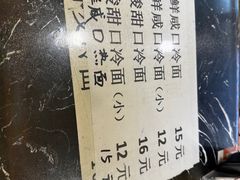 鲜咸口冷面 15元
鲜咸口冷面(小) 12元
酸甜口冷面 16元
酸甜口冷面(小) 12元
咸口热面 15元